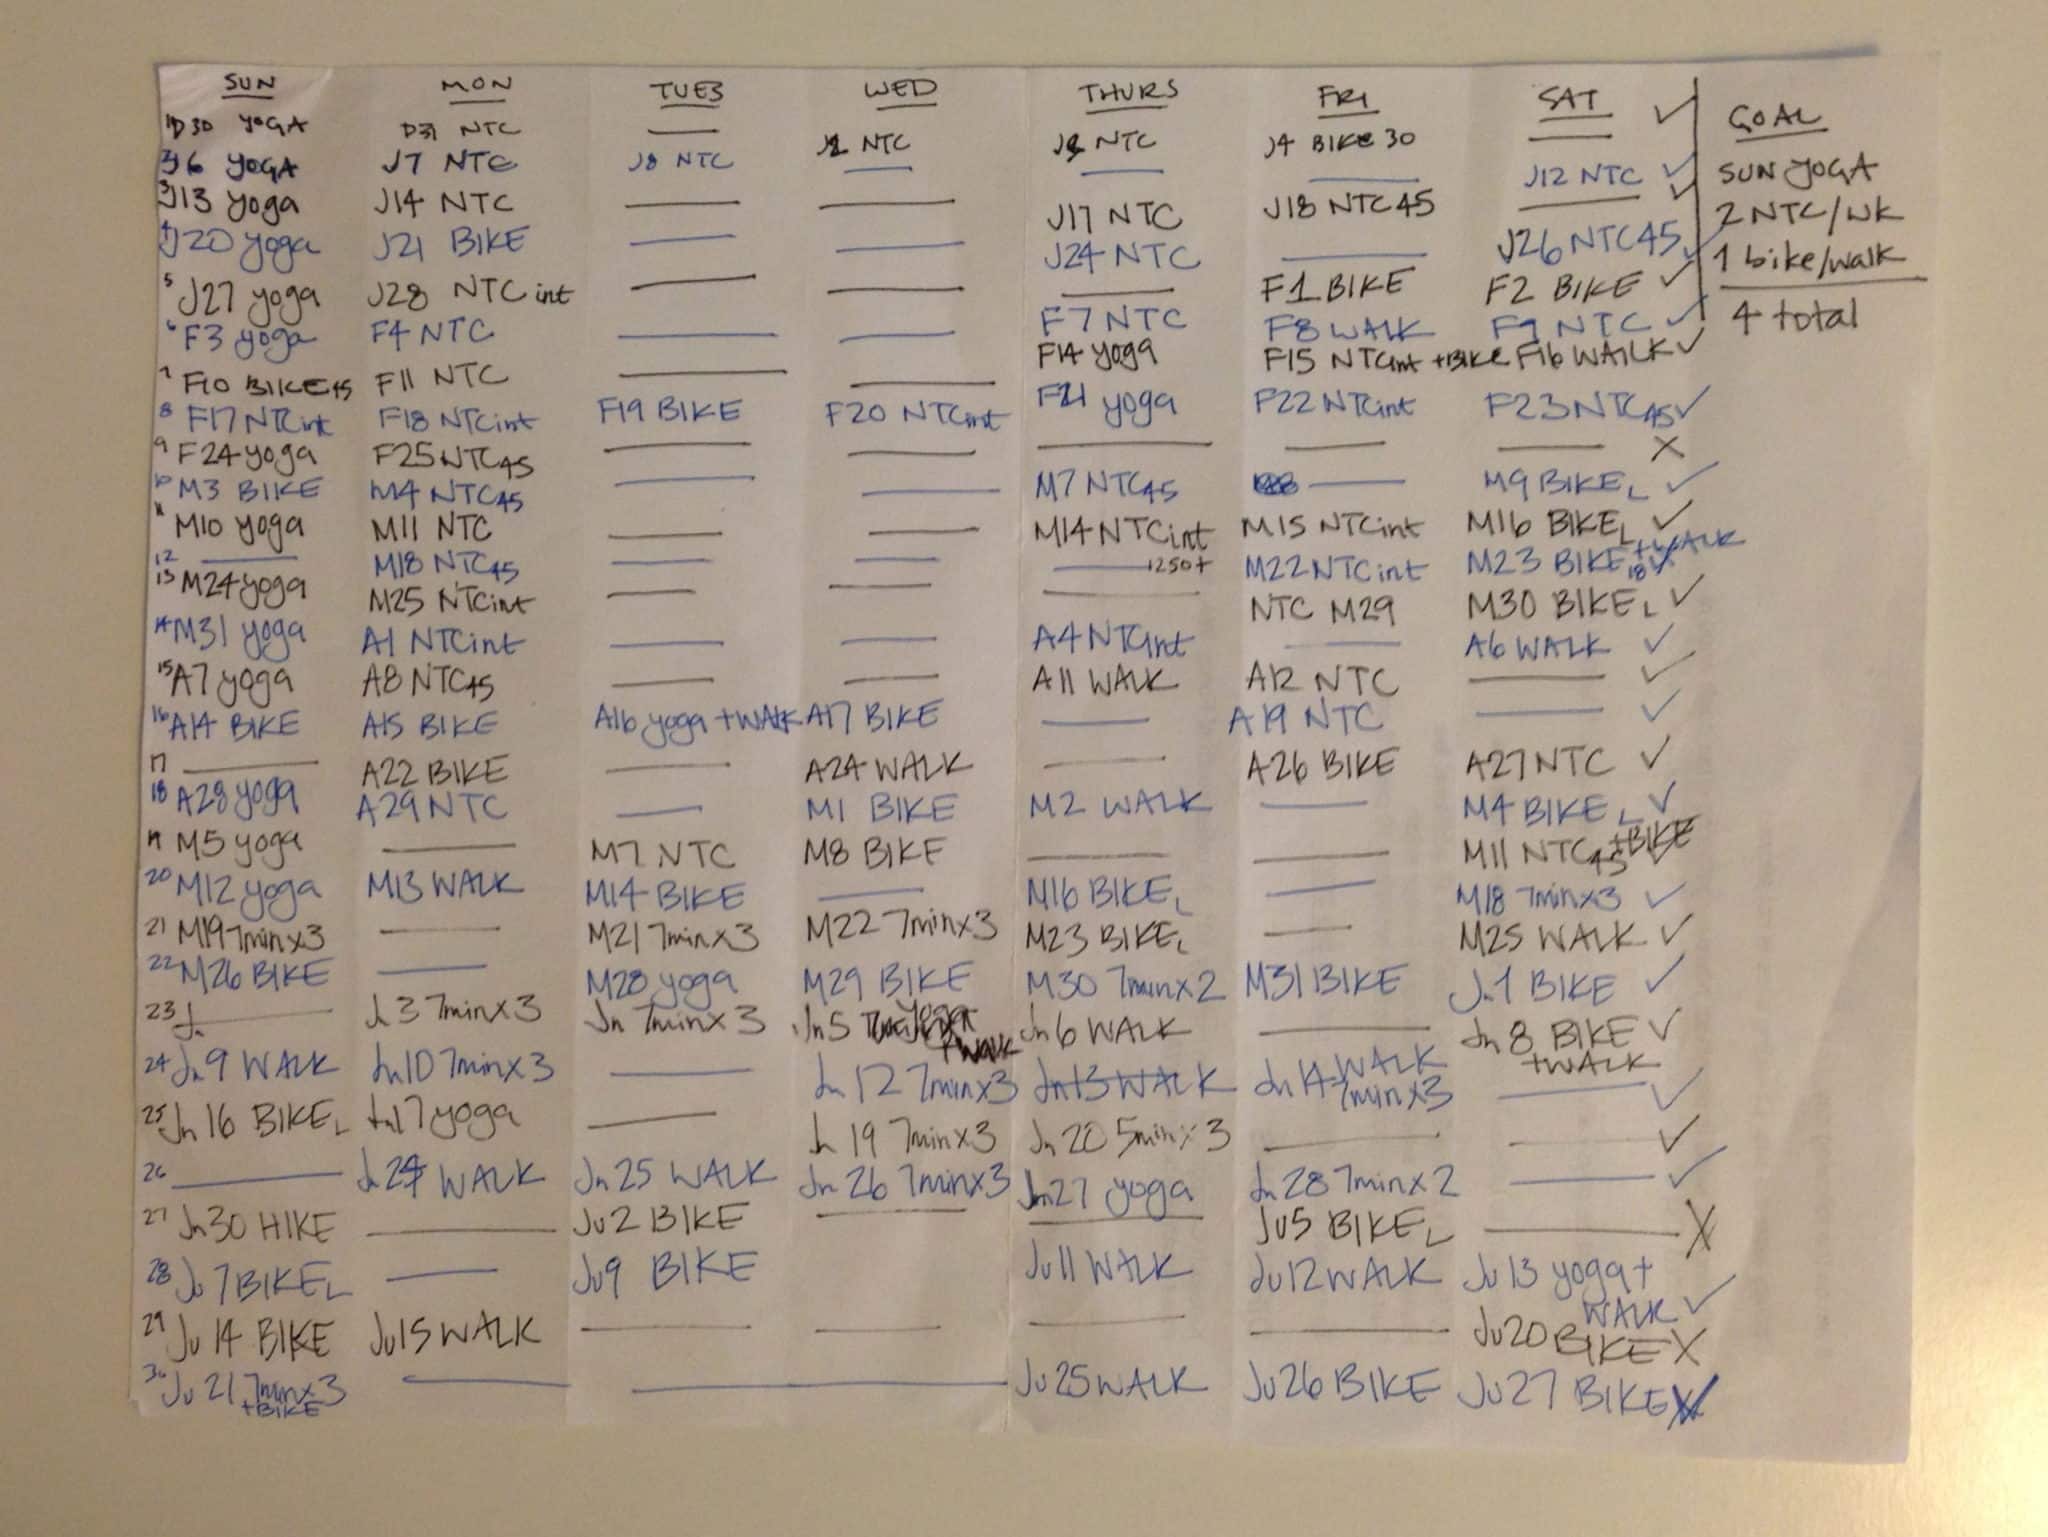 SUN MON TUES WED THURS FRI SAT ✓ GOAL
1 D30 YOGA D31 NTC — J2 NTC J3 NTC J4 BIKE 30 —
2 J6 YOGA J7 NTC J8 NTC — — — J12 NTC ✓ SUN YOGA
3 J13 yoga J14 NTC — — J17 NTC J18 NTC45 — ✓ 2 NTC/WK
4 J20 yoga J21 BIKE — — J24 NTC — J26 NTC45 ✓ 1 bike/walk
5 J27 yoga J28 NTCint — — — F1 BIKE F2 BIKE ✓ 4 total
6 F3 yoga F4 NTC — — F7 NTC F8 WALK F9 NTC ✓
7 F10 BIKE45 F11 NTC — — F14 yoga F15 NTCint +BIKE F16 WALK ✓
8 F17 NTCint F18 NTCint F19 BIKE F20 NTCint F21 yoga F22 NTCint F23 NTC45 ✓
9 F24 yoga F25 NTC45 — — — — — X
10 M3 BIKE M4 NTC45 — — M7 NTC45 — M9 BIKEL ✓
11 M10 yoga M11 NTC — — M14 NTCint M15 NTCint M16 BIKEL ✓
12 — M18 NTC45 — — — 1250+ M22 NTCint M23 BIKE18 +WALK ✓
13 M24 yoga M25 NTCint — — — NTC M29 M30 BIKEL ✓
14 M31 yoga A1 NTCint — — A4 NTCint — A6 WALK ✓
15 A7 yoga A8 NTC45 — — A11 WALK A12 NTC — ✓
16 A14 BIKE A15 BIKE A16 yoga +WALK A17 BIKE — A19 NTC — ✓
17 — A22 BIKE — A24 WALK — A26 BIKE A27 NTC ✓
18 A28 yoga A29 NTC — M1 BIKE M2 WALK — M4 BIKEL ✓
19 M5 yoga — M7 NTC M8 BIKE — — M11 NTC45 +BIKE ✓
20 M12 yoga M13 WALK M14 BIKE — M16 BIKEL — M18 7minx3 ✓
21 M19 7minx3 — M21 7minx3 M22 7minx3 M23 BIKEL — M25 WALK ✓
22 M26 BIKE — M28 yoga M29 BIKE M30 7minx2 M31 BIKE Jn1 BIKE ✓
23 Jn — Jn3 7minx3 Jn 7minx3 Jn5 yoga +WALK Jn6 WALK — Jn8 BIKE ✓
+WALK
24 Jn9 WALK Jn10 7minx3 — Jn12 7minx3 Jn13 WALK Jn14 WALK — ✓
7minx3
25 Jn16 BIKEL Jn17 yoga — Jn19 7minx3 Jn20 5minx3 — — ✓
26 — Jn24 WALK Jn25 WALK Jn26 7minx3 Jn27 yoga Jn28 7minx2 — ✓
27 Jn30 HIKE — Ju2 BIKE — — Ju5 BIKEL — X
28 Ju7 BIKEL — Ju9 BIKE Ju11 WALK Ju12 WALK Ju13 yoga+
WALK ✓
29 Ju14 BIKE Ju15 WALK — — — — Ju20 BIKE X
30 Ju21 7minx3 — — Ju25 WALK Ju26 BIKE Ju27 BIKE
+BIKE